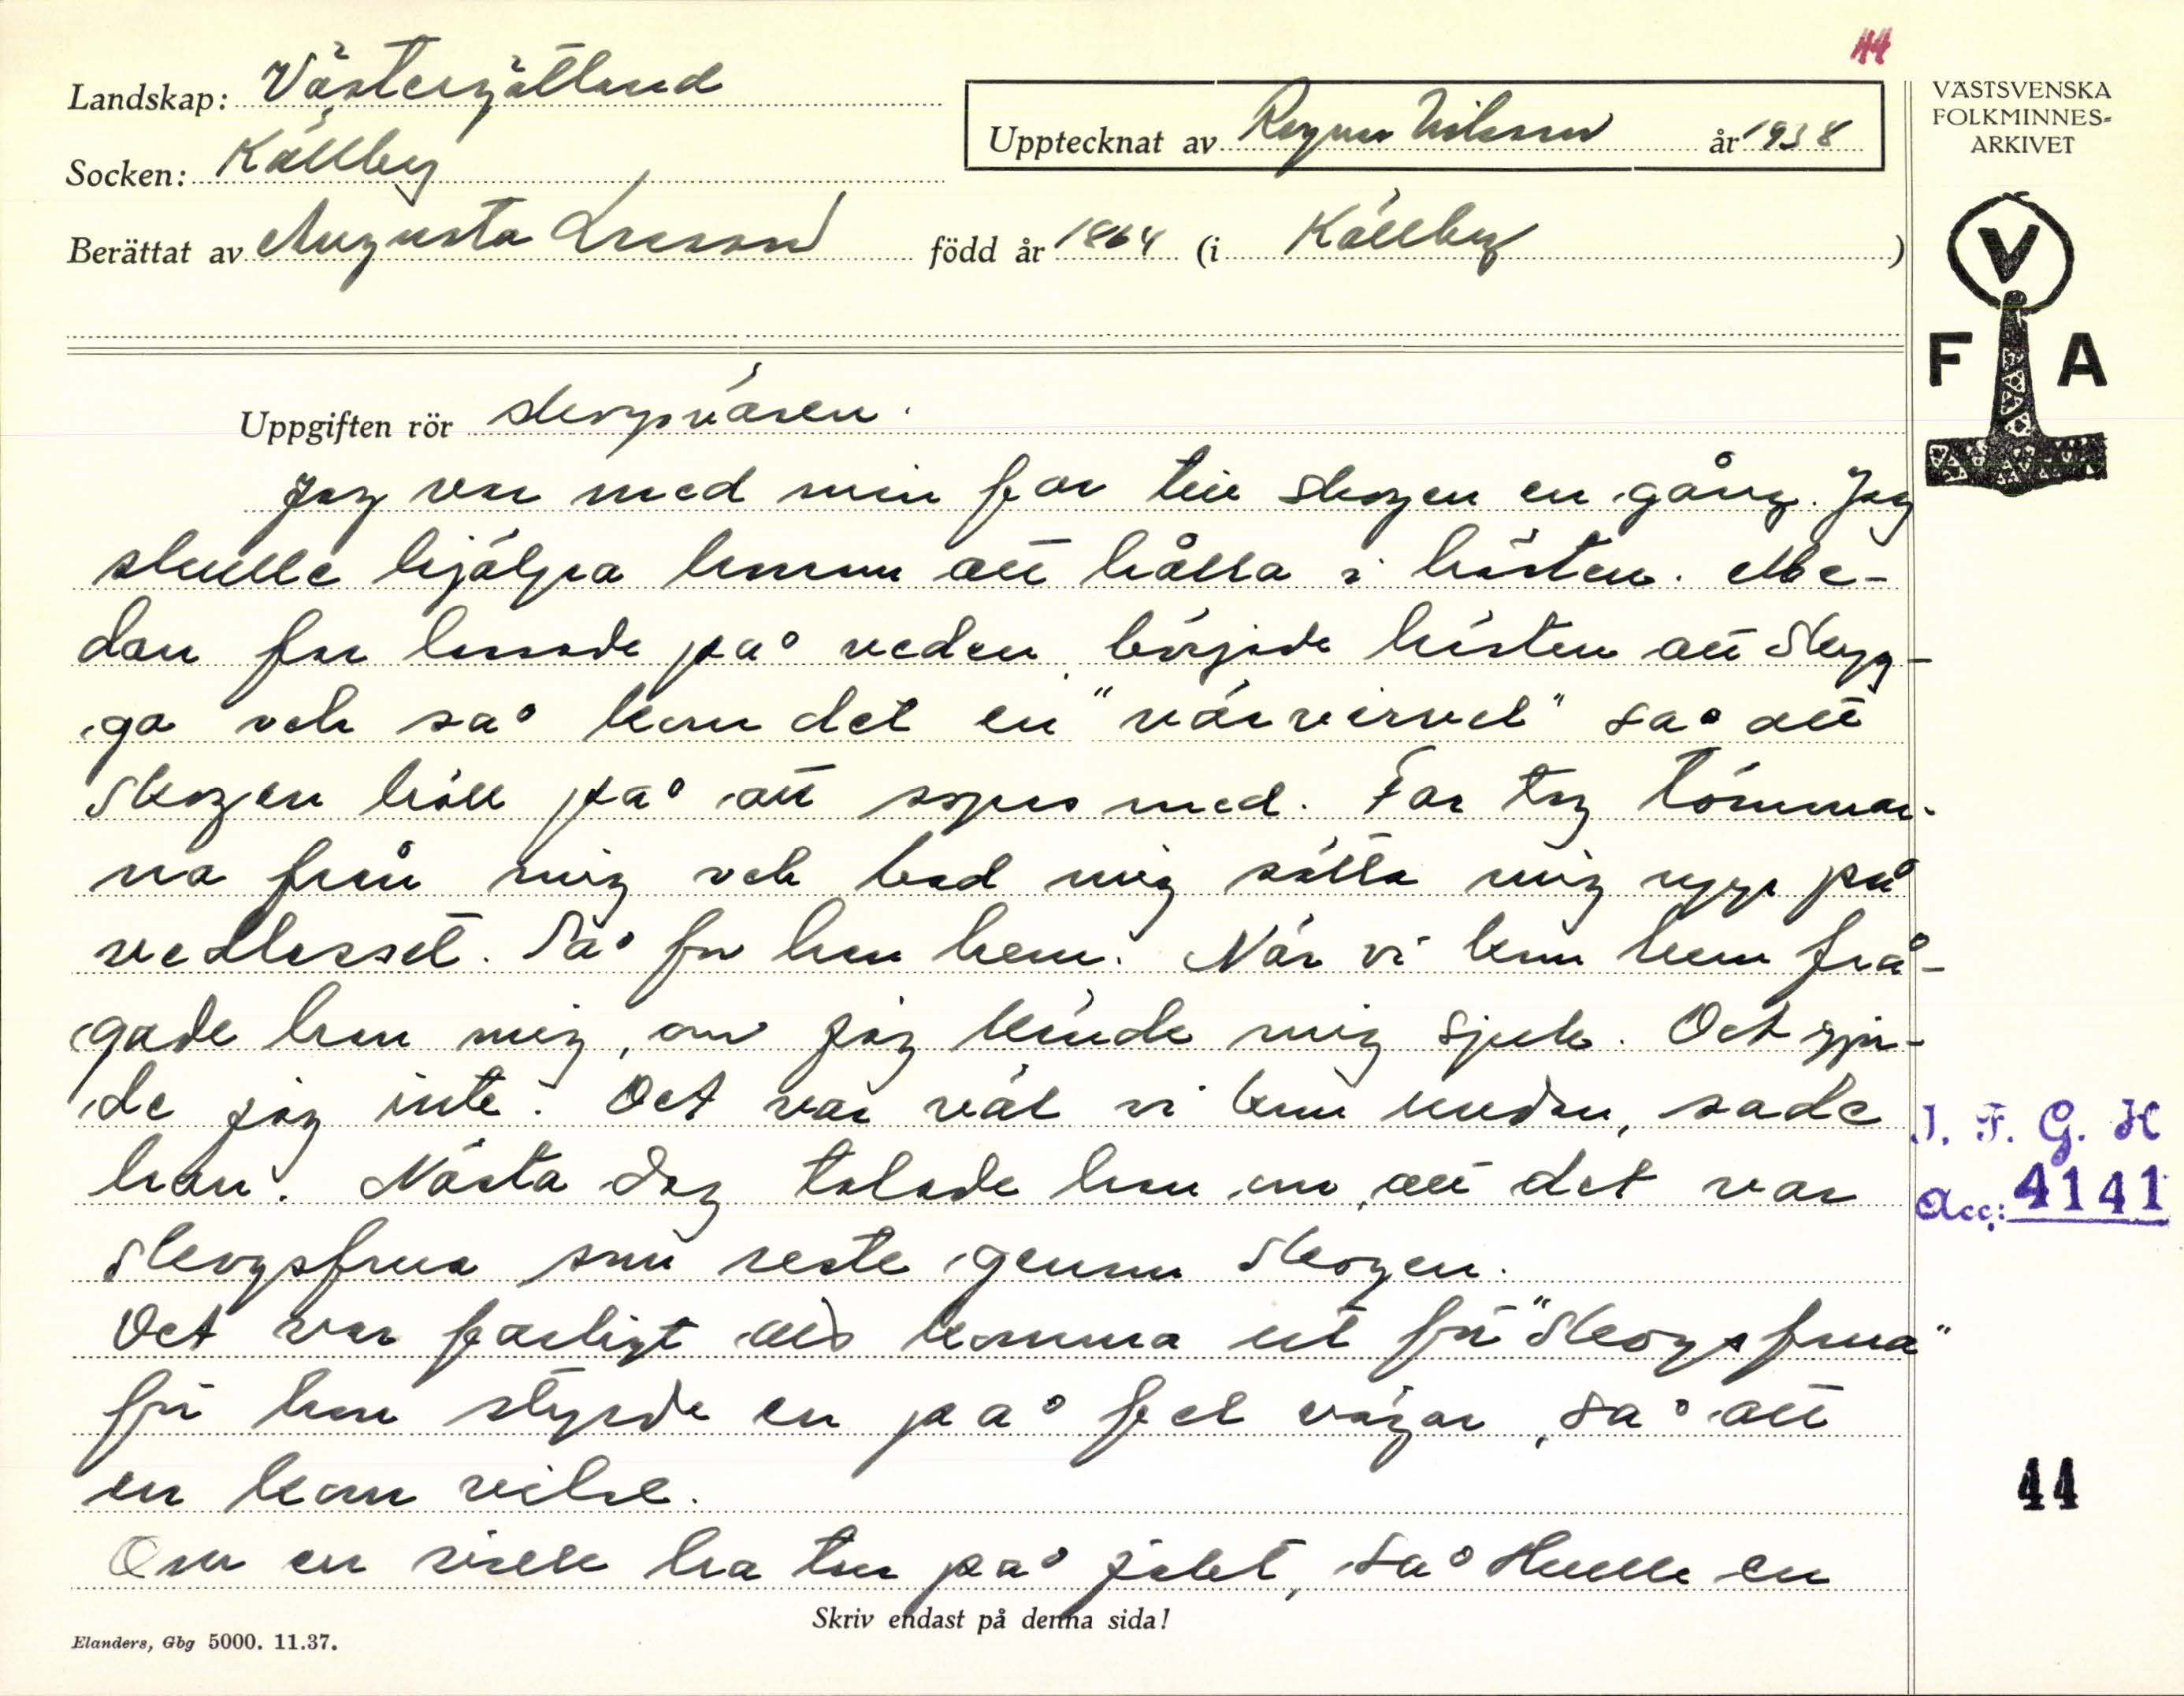 44
Landskap: Västergötland
Socken: Källby
Upptecknat av Ragnar Nilsson år 1938
Berättat av Augusta Larsson född år 1864 (i Källby)
VÄSTSVENSKA
FOLKMINNES-
ARKIVET
V
F A
Uppgiften rör skogsväsen.
Jag var med min far till skogen en gång. Jag
skulle hjälpa honom att hålla i hästen. Me-
dan far lassade på veden, började hästen att skyg-
ga och så kom det en "värvirvel" så att
skogen höll på att sopas med. Far tog tömmar-
na från mig och bad mig sätta mig upp på
vedlasset. Så for han hem. När vi kom hem frå-
gade han mig, om jag kände mig sjuk. Det gjor-
de jag inte. Det var väl vi kom undan, sade
han. Nästa dag talade han om, att det var
skogsfrua som reste genom skogen.
Det var farligt att komma ut för "skogsfrua"
för hon styrde en på fel vägar, så att
en kom vilse.
Om en ville ha tur på jakt, så skulle en
Skriv endast på denna sida!
Elanders, Gbg 5000. 11.37.
I. F. G. H
Acc: 4141
44